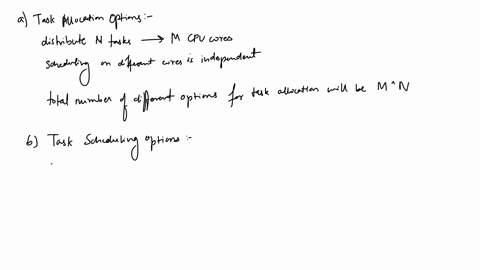 a) Task Allocation Options:-
distribute N tasks → M CPU cores
Scheduling on different cores is independent
total number of different options for task allocation will be M^N
b) Task Scheduling options:-